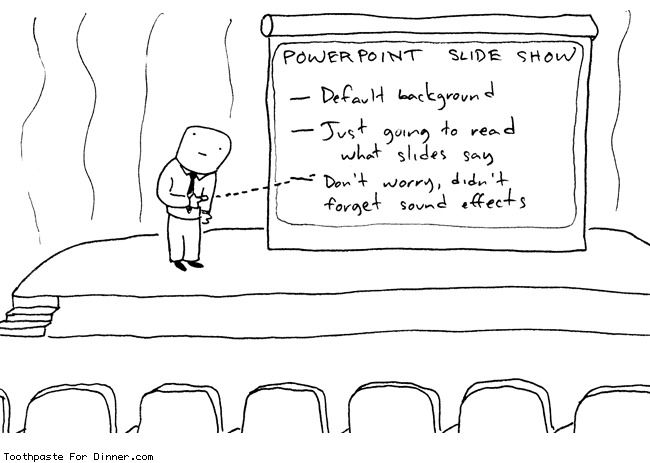 POWERPOINT SLIDE SHOW
— Default background
— Just going to read
what slides say
— Don't worry, didn't
forget sound effects
Toothpaste For Dinner.com